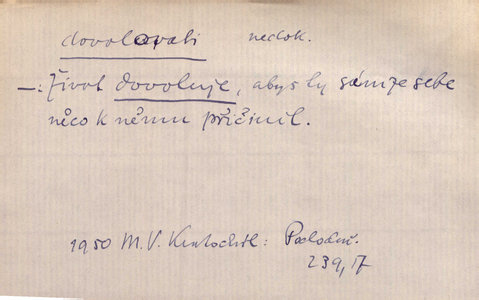 dovolovati nedok.
—: Život dovoluje, abys ty sám ze sebe
něco k němu přičinil.
1950 M. V. Kratochvíl: Podobiz.
239, 17